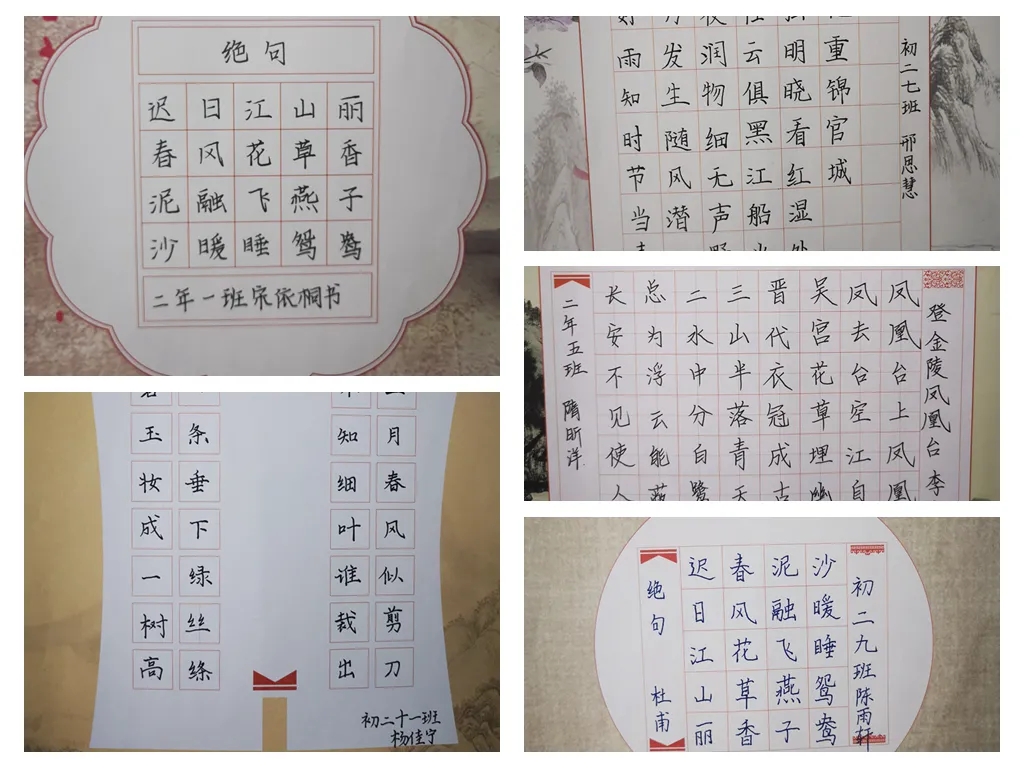 绝句
迟日江山丽
春风花草香
泥融飞燕子
沙暖睡鸳鸯
二年一班宋依桐书
雨知时节当
发生随风潜
润物细无声
云俱黑江船
明晓看红湿
重锦官城
初二七班 邢思慧
登金陵凤凰台 李
凤凰台上凤凰
凤去台空江自
吴宫花草埋幽
晋代衣冠成古
三山半落青天
二水中分自鹭
总为浮云能
长安不见使人
二年五班 隋昕洋
玉妆成一树高
条垂下绿丝绦
知细叶谁裁出
月春风似剪刀
初二十一班
杨佳宁
绝句 杜甫
迟日江山丽
春风花草香
泥融飞燕子
沙暖睡鸳鸯
初二九班陈雨轩